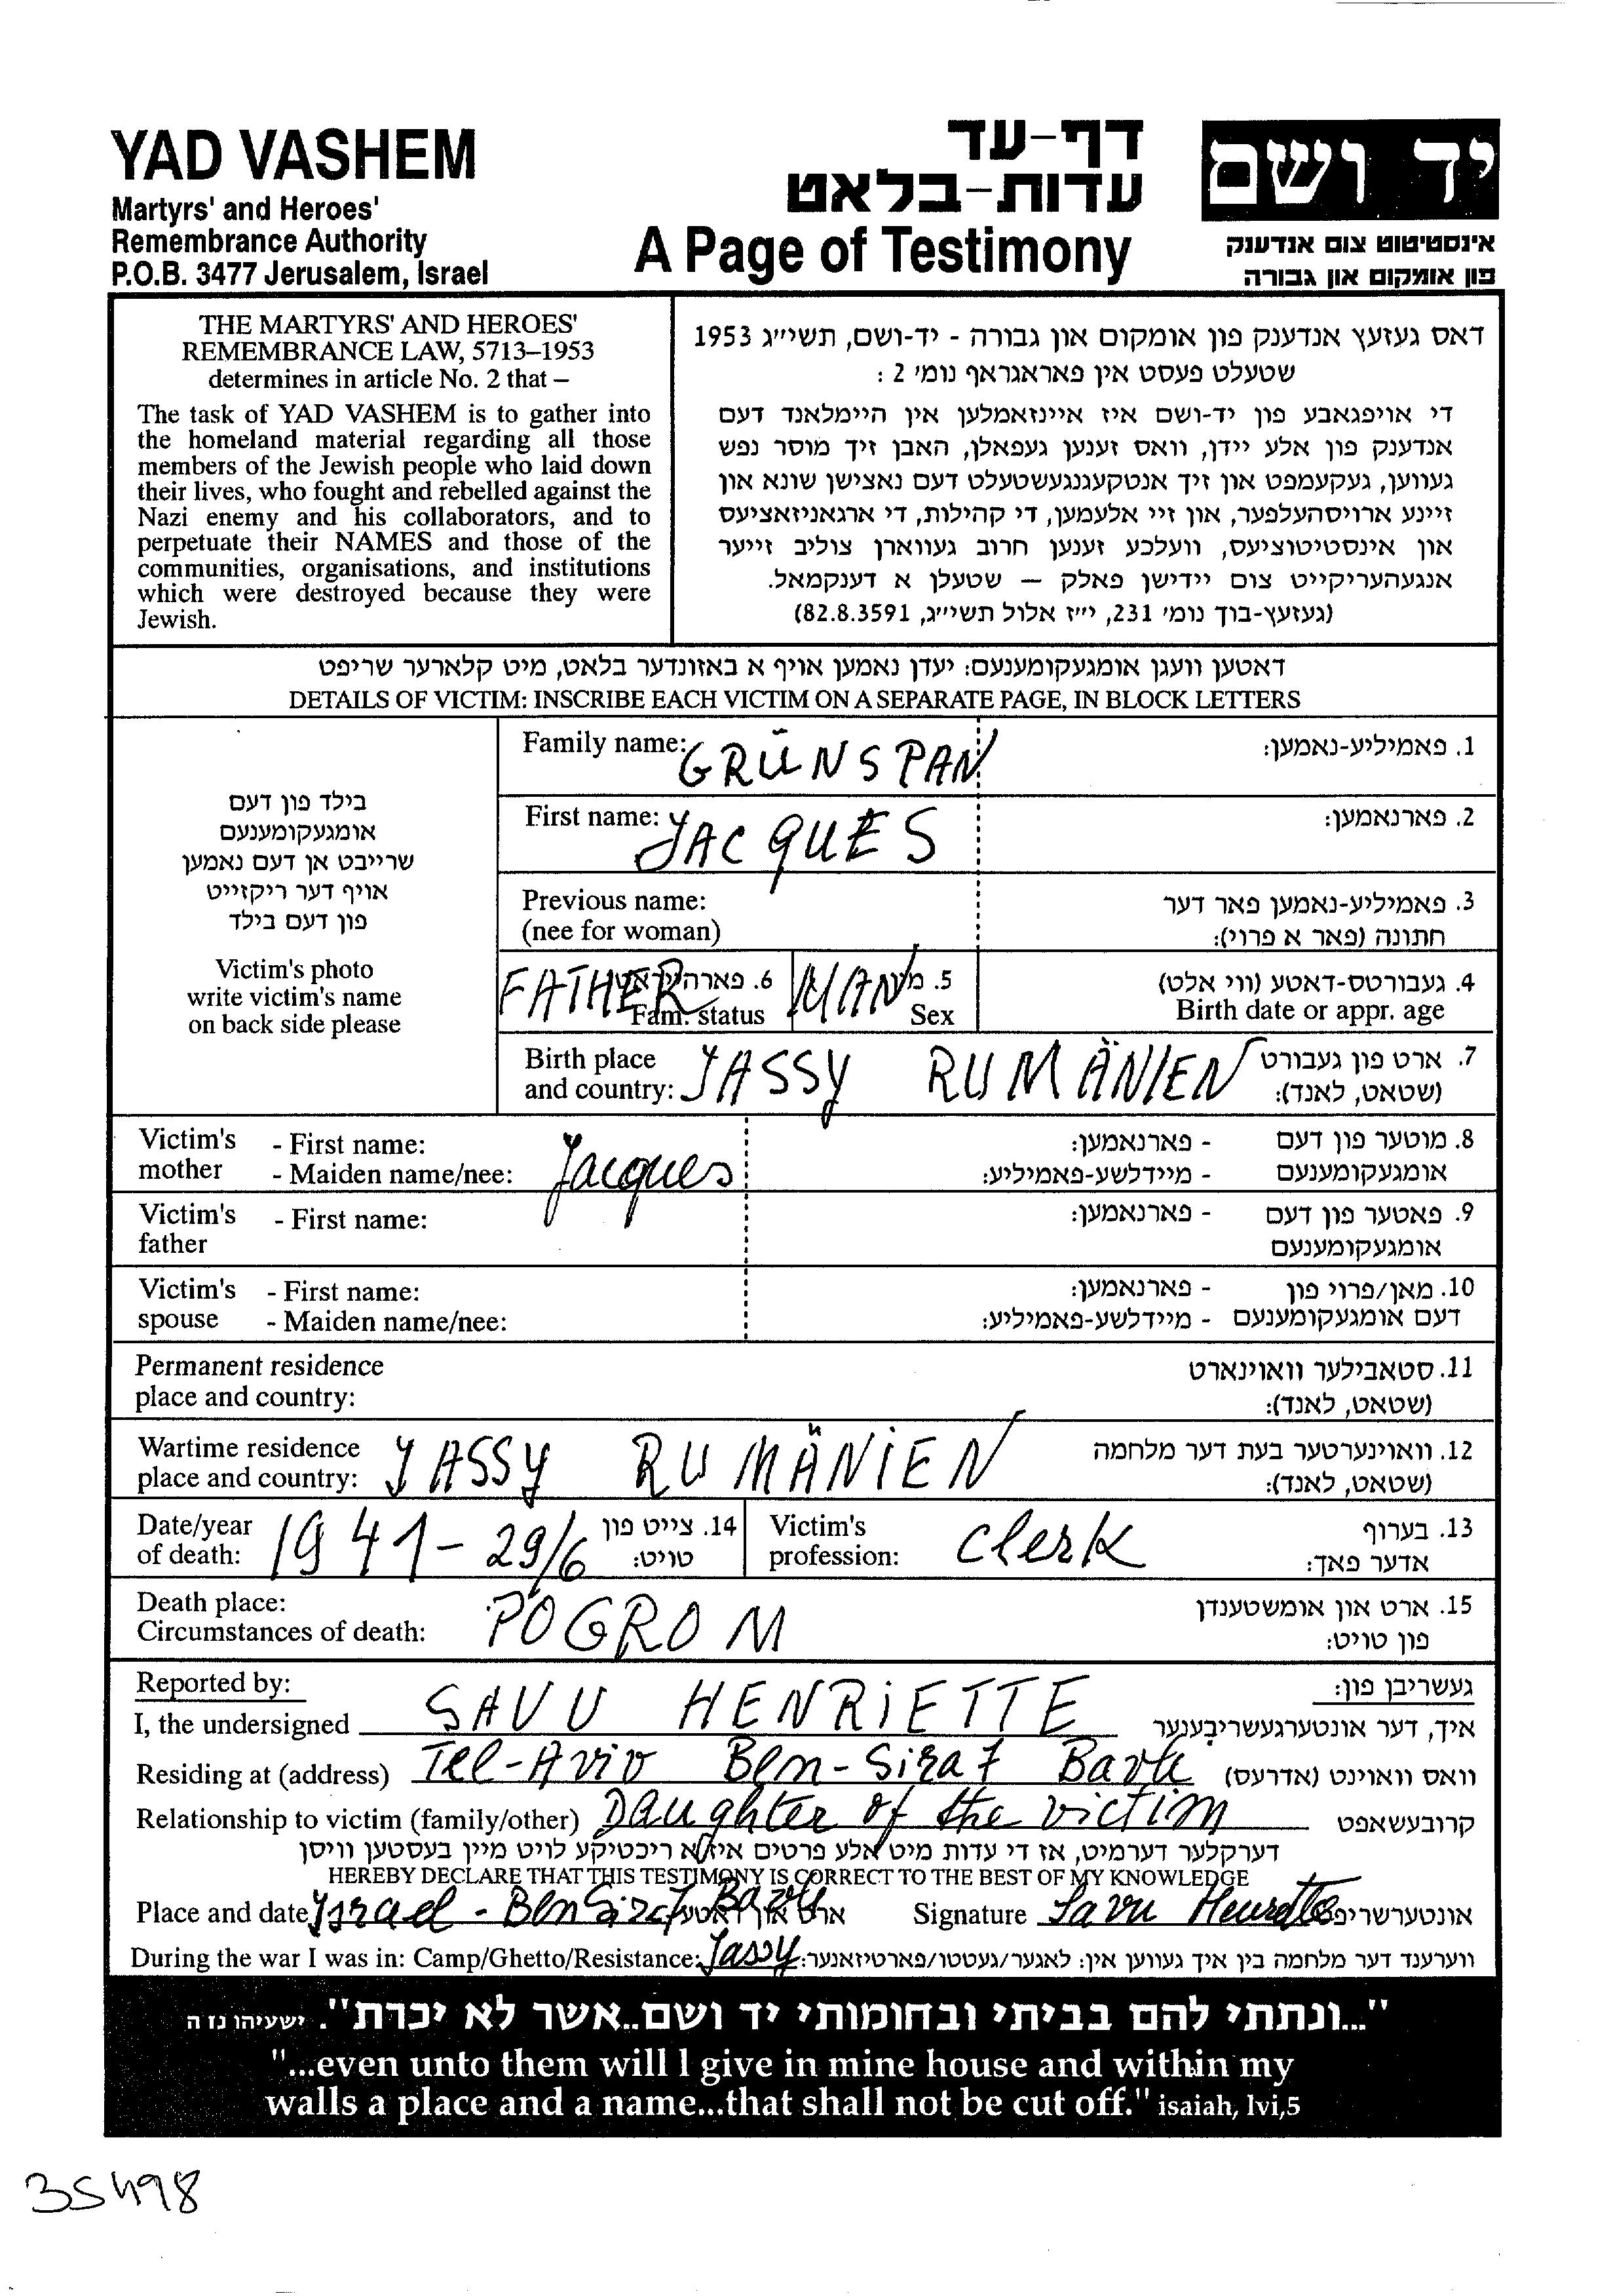 YAD VASHEM
Martyrs' and Heroes'
Remembrance Authority
P.O.B. 3477 Jerusalem, Israel
דף-עד
עדות-בלאט
A Page of Testimony
יד ושם
אינסטיטוט צום אנדענק
פון אומקום און גבורה
THE MARTYRS' AND HEROES'
REMEMBRANCE LAW, 5713–1953
determines in article No. 2 that –
The task of YAD VASHEM is to gather into
the homeland material regarding all those
members of the Jewish people who laid down
their lives, who fought and rebelled against the
Nazi enemy and his collaborators, and to
perpetuate their NAMES and those of the
communities, organisations, and institutions
which were destroyed because they were
Jewish.
דאס געזעץ אנדענק פון אומקום און גבורה - יד-ושם, תשי״ג 1953
שטעלט פעסט אין פאראגראף נומ׳ 2 :
די אויפגאבע פון יד-ושם איז איינזאמלען אין היימלאנד דעם
אנדענק פון אלע יידן, וואס זענען געפאלן, האבן זיך מוסר נפש
געווען, געקעמפט און זיך אנטקעגנגעשטעלט דעם נאצישן שונא און
זיינע ארויסהעלפער, און זיי אלעמען, די קהילות, די ארגאניזאציעס
און אינסטיטוציעס, וועלכע זענען חרוב געווארן צוליב זייער
אנגעהעריקייט צום יידישן פאלק – שטעלן א דענקמאל.
(געזעץ-בוך נומ׳ 231, י״ז אלול תשי״ג, 82.8.3591)
דאטען וועגן אומגעקומענעם: יעדן נאמען אויף א באזונדער בלאט, מיט קלארער שריפט
DETAILS OF VICTIM: INSCRIBE EACH VICTIM ON A SEPARATE PAGE, IN BLOCK LETTERS
בילד פון דעם
אומגעקומענעם
שרייבט אן דעם נאמען
אויף דער ריקזייט
פון דעם בילד
Victim's photo
write victim's name
on back side please
Family name: GRÜNSPAN 1. פאמיליע-נאמען:
First name: JACQUES 2. פארנאמען:
Previous name: 3. פאמיליע-נאמען פאר דער
(nee for woman) חתונה (פאר א פרוי):
FATHER 6. MAN 5. מין 4. געבורטס-דאטע (ווי אלט)
Fam. status Sex Birth date or appr. age
Birth place JASSY RUMÄNIEN 7. ארט פון געבורט
and country: (שטאט, לאנד):
Victim's - First name: 8. מוטער פון דעם - פארנאמען:
mother - Maiden name/nee: Jacques אומגעקומענעם - מיידלשע-פאמיליע:
Victim's - First name: 9. פאטער פון דעם - פארנאמען:
father אומגעקומענעם
Victim's - First name: 10. מאן/פרוי פון - פארנאמען:
spouse - Maiden name/nee: דעם אומגעקומענעם - מיידלשע-פאמיליע:
Permanent residence 11. סטאבילער וואוינארט
place and country: (שטאט, לאנד):
Wartime residence 12. וואוינערטער בעת דער מלחמה
place and country: JASSY RUMÄNIEN (שטאט, לאנד):
Date/year 14. צייט פון Victim's 13. בערוף
of death: 1941-29/6 טויט: profession: clerk אדער פאך:
Death place: 15. ארט און אומשטענדן
Circumstances of death: POGROM פון טויט:
Reported by: געשריבן פון:
I, the undersigned SAVU HENRIETTE איך, דער אונטערגעשריבענער
Residing at (address) Tel-Aviv Ben-Sira 7 וואס וואוינט (אדרעס)
Relationship to victim (family/other) Daughter of the victim קרובעשאפט
דערקלער דערמיט, אז די עדות מיט אלע פרטים איז א ריכטיקע לויט מיין בעסטען וויסן
HEREBY DECLARE THAT THIS TESTIMONY IS CORRECT TO THE BEST OF MY KNOWLEDGE
Place and date Ysrael - Ben Sira 7 ארט און דאטע Signature Savu Henriette אונטערשריפט
During the war I was in: Camp/Ghetto/Resistance: Jassy ווערענד דער מלחמה בין איך געווען אין: לאגער/געטטו/פארטיזאנער:
"...ונתתי להם בביתי ובחומותי יד ושם..אשר לא יכרת". ישעיהו נז ה
"...even unto them will I give in mine house and within my
walls a place and a name...that shall not be cut off." isaiah, lvi,5
35498